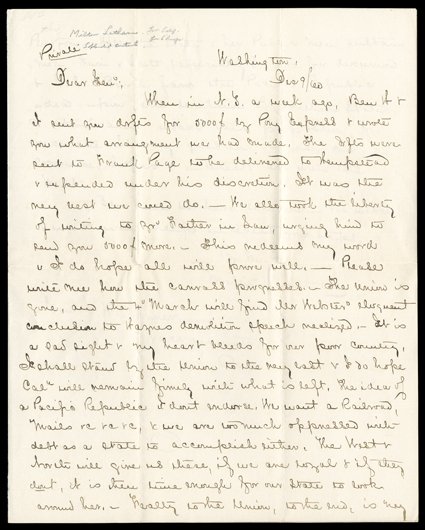 Private
Washington,
Dec 9/60
Dear Gen:,
When in N.Y. a week ago, Ben H &
I sent you drfts for 5000$ by Pony Express & wrote
you what arrangment we had made. The drfts were
sent to Frank Page to be delivered to Hempstead
& expended under his discretion. It was the
very best we could do. — We also took the liberty
of writing to yr Father in Law, urging him to
send you 5000$ more. — This redeemed my word
& I do hope all will prove well. — Please
write me how the canvass progresses. — The Union is
gone, and the 4" March will find Mr Websters eloquent
conclusion to Haynes demolition speech realized. — It is
a sad sight & my heart bleeds for our poor country,
I shall stand by the Union to the very last & I do hope
Cala will remain firmly with what is left. The idea of
a Pacific Republic I dont endorse. We want a Railroad,
Mails &c &c &c, & we are too much oppressed with
debt as a State to accomplish either. The West &
North will give us these, if we are loyal & if they
dont, it is then time enough for our State to look
around her. — Fealty to the Union, to the end, is my